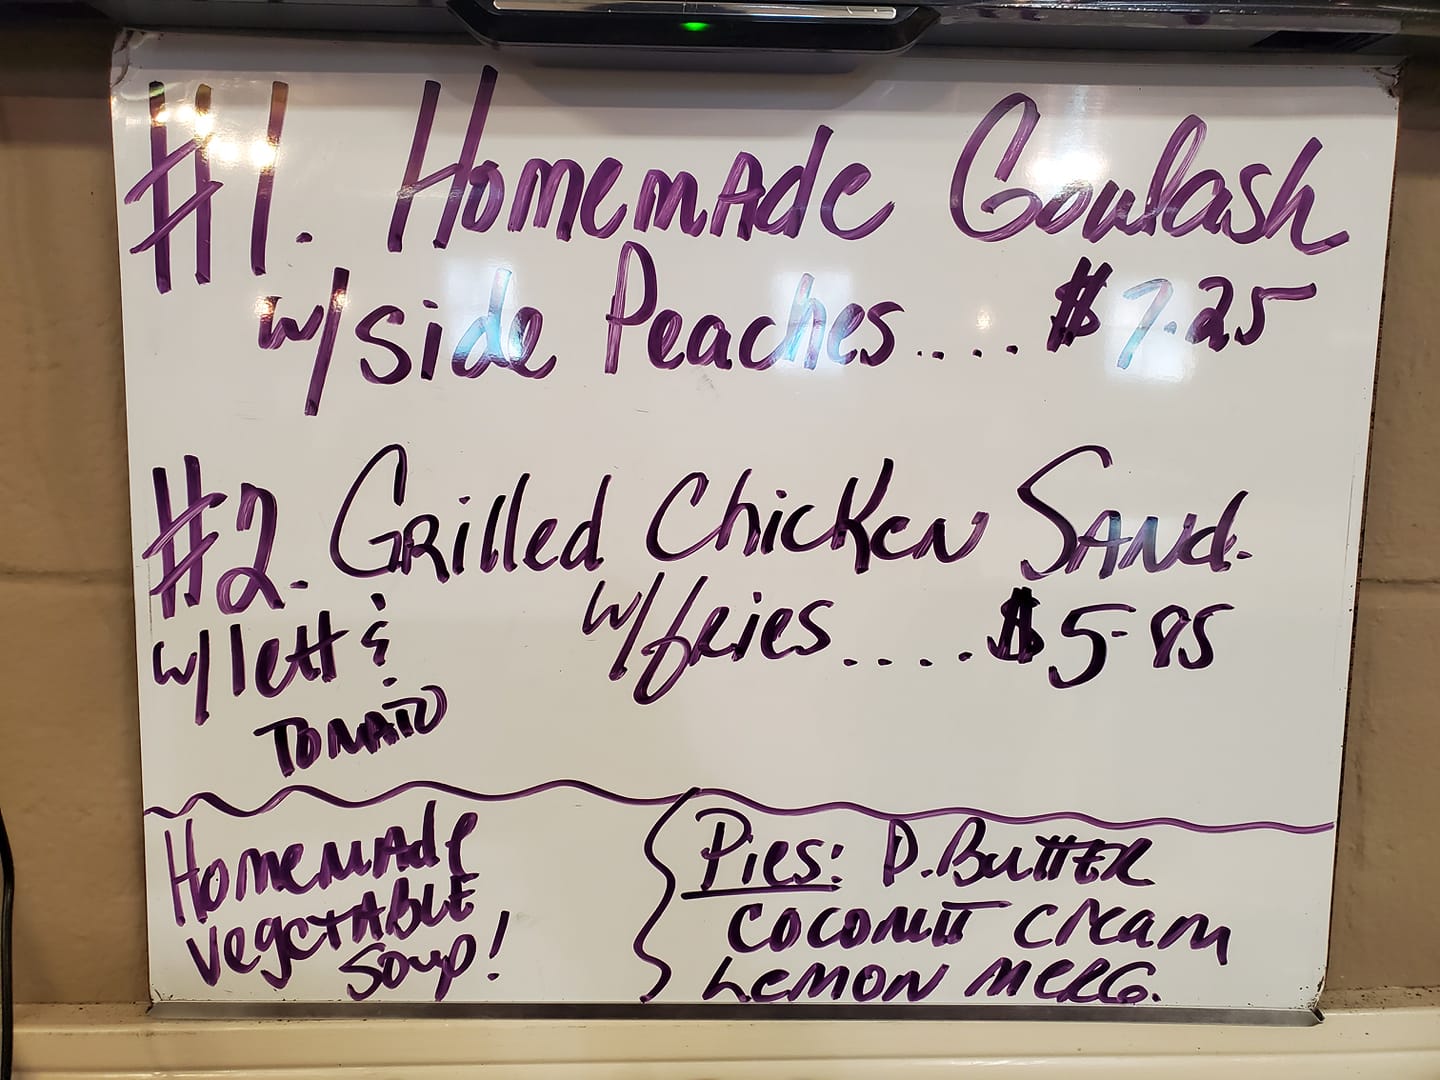 #1. Homemade Goulash
w/side Peaches.... $7.25
#2. Grilled Chicken Sand.
w/lett & w/fries....$5.95
Tomato
Homemade
Vegetable
Soup!
Pies: P.Butter
Coconut Cream
Lemon Merg.